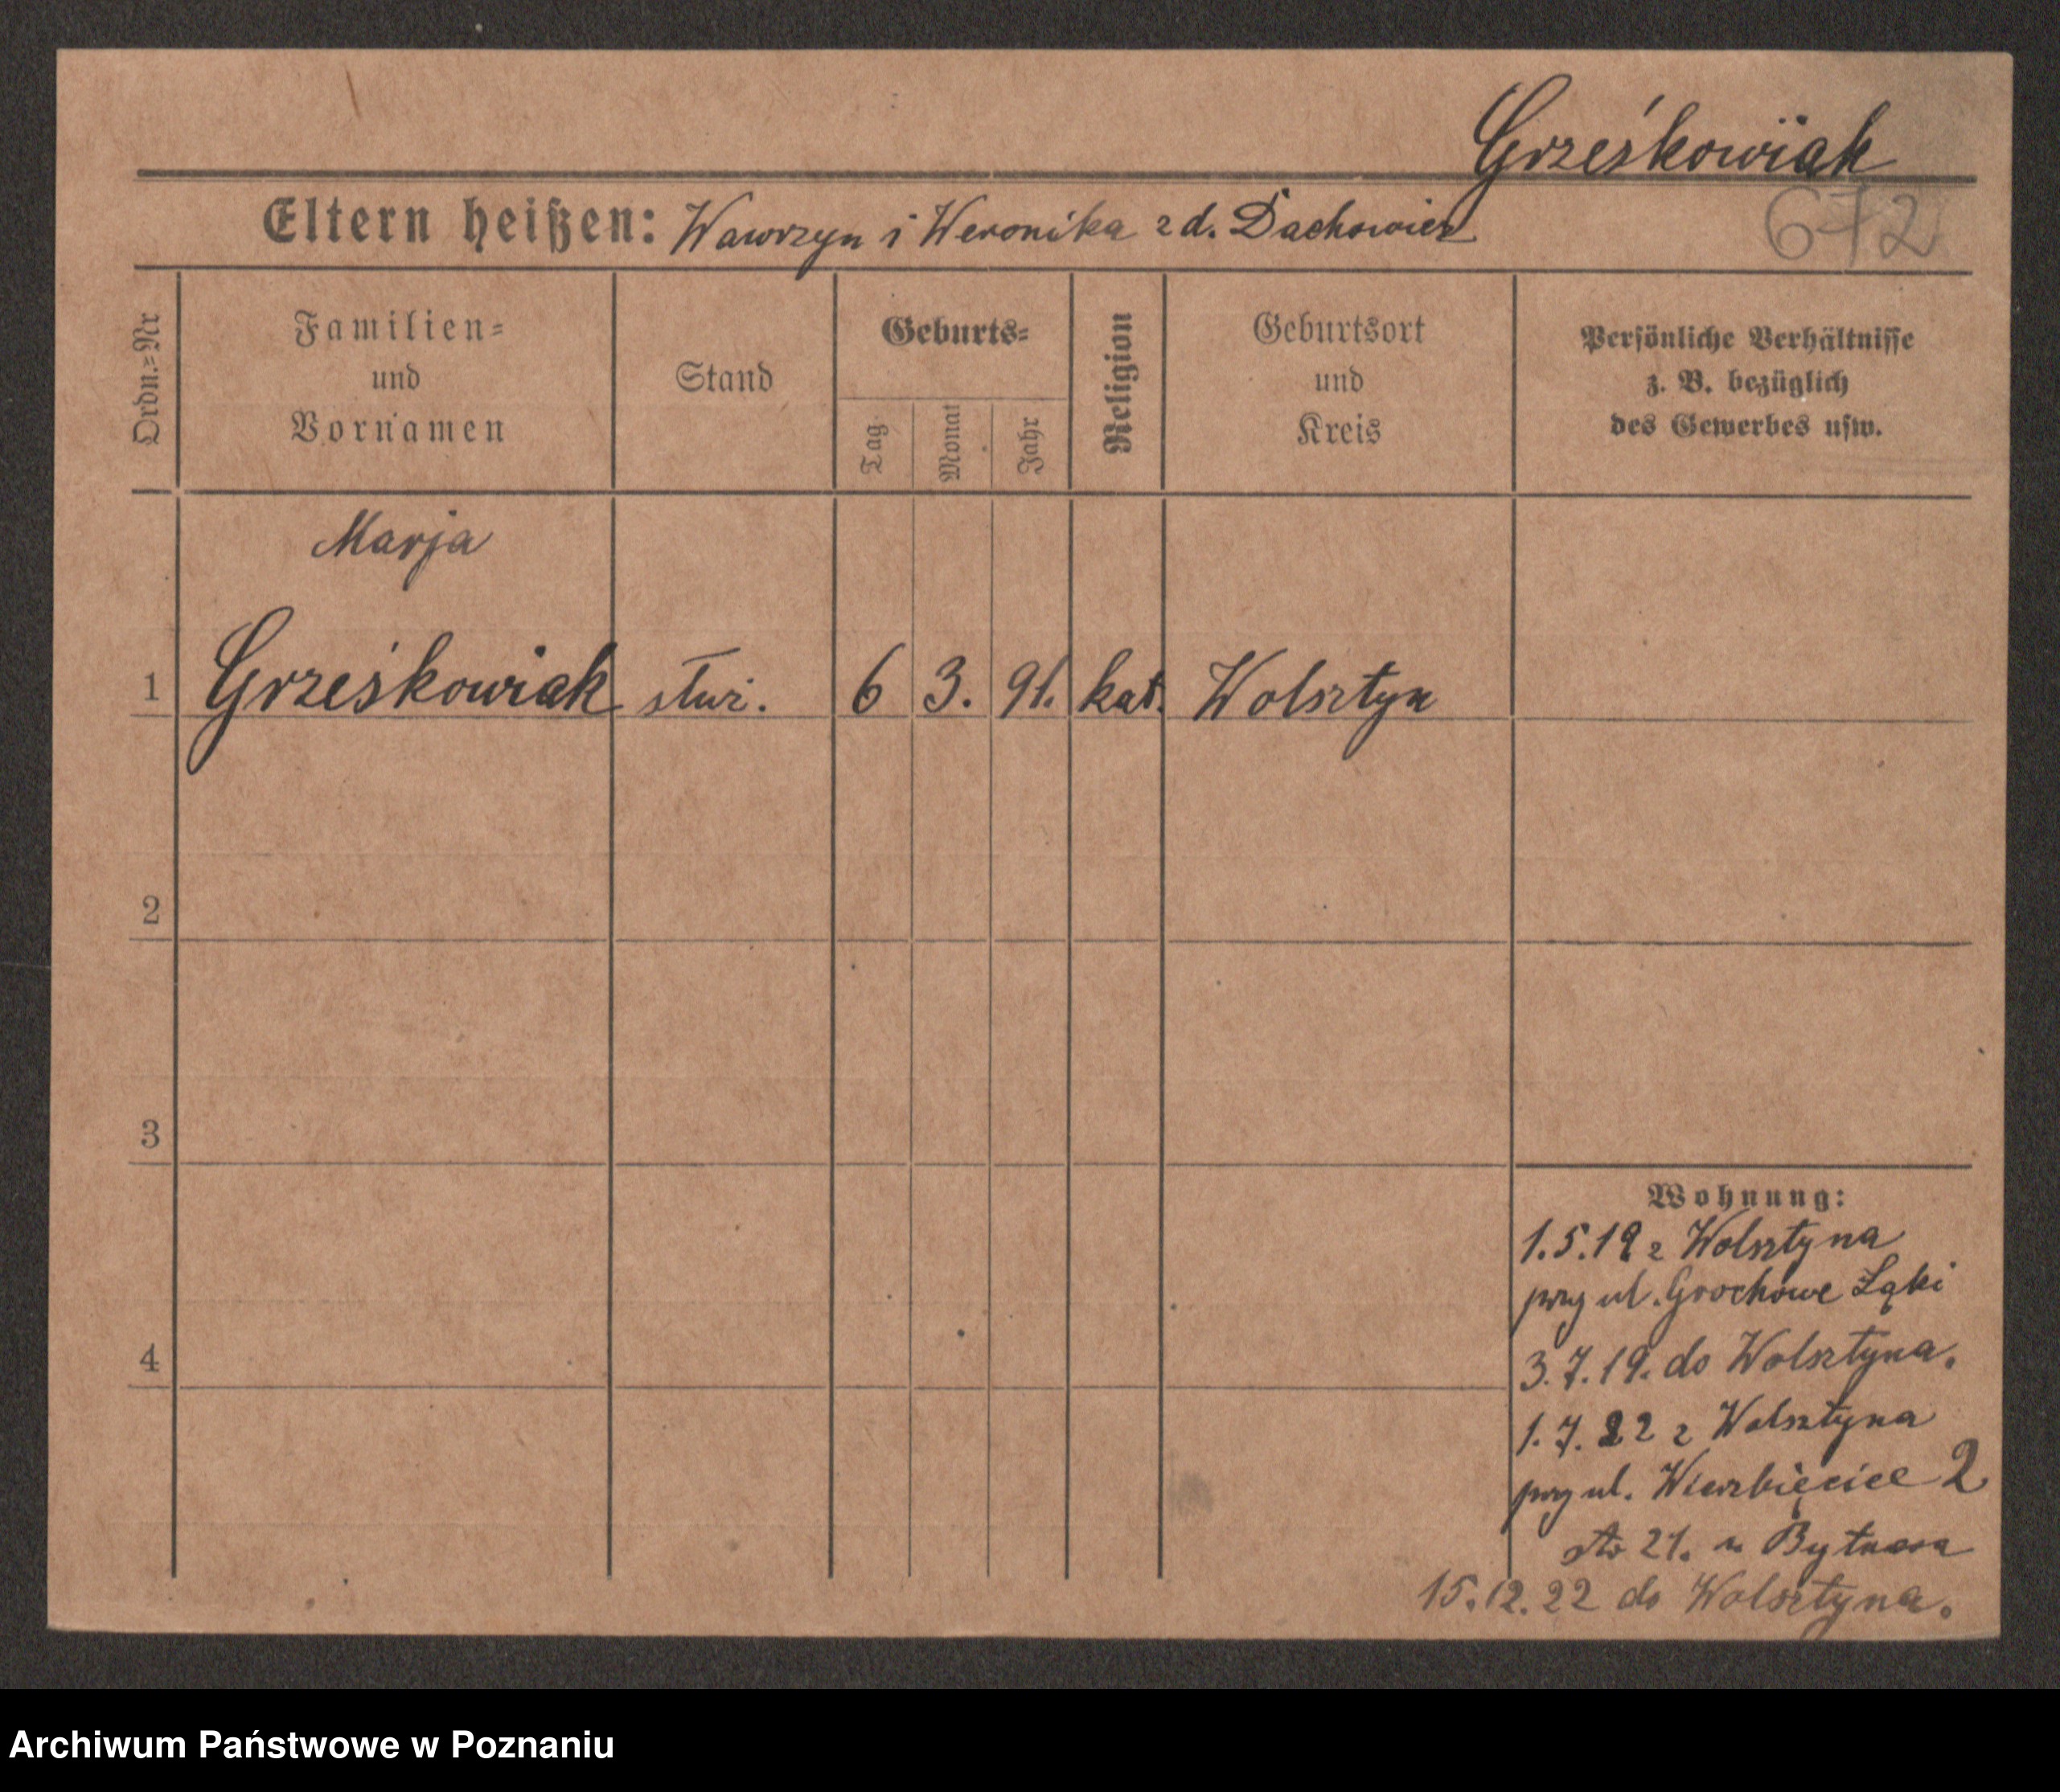 Grześkowiak
Eltern heißen: Wawrzyn i Weronika z d. Dachowicz
672
Ordn.=Nr
Familien=
und
Vornamen
Stand
Geburts=
Tag
Monat
Jahr
Religion
Geburtsort
und
Kreis
Persönliche Verhältnisse
z. B. bezüglich
des Gewerbes usw.
Marja
1 Grześkowiak służ. 6 3. 91. kat. Wolsztyn
2
3
4
Wohnung:
1.5.19 z Wolsztyna
przy ul. Grochowe Łąki
3.7.19. do Wolsztyna.
1.7.22 z Wolsztyna
przy ul. Wierzbięcice 2
21. u
15.12.22 do Wolsztyna.
Archiwum Państwowe w Poznaniu